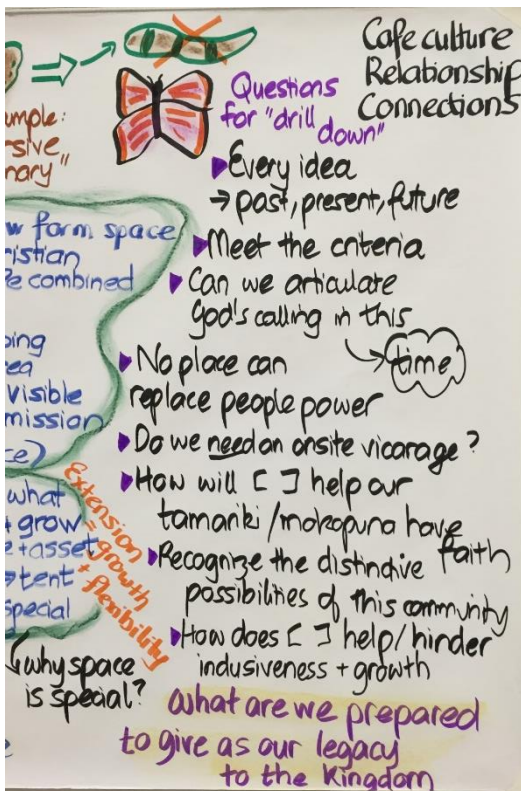 Cafe culture
Relationship
Connections
Questions
for "drill
down"
Every idea
→ past, present, future
Meet the criteria
Can we articulate
God's calling in this
→ time
No place can
replace people power
Do we need an onsite vicarage?
How will [ ] help our
tamariki / mokopuna have
faith
Recognize the distinctive
possibilities of this community
How does [ ] help/hinder
inclusiveness + growth
what are we prepared
to give as our legacy
to the Kingdom
form space
combined
visible
mission
what
+ grow
+ asset
special
Extension
= growth
+ flexibility
why space
is special?